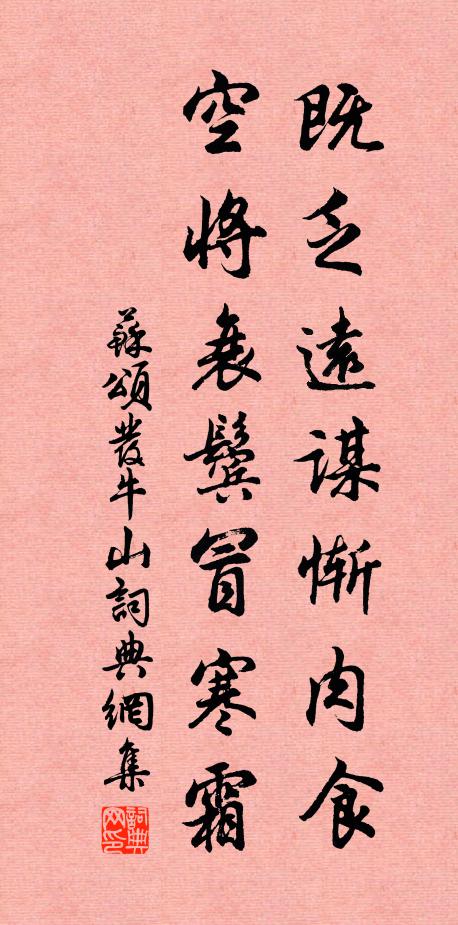 既乏遠謀慚肉食
空將衰鬢冒寒霜
蘇頌發牛山詞典網集
詞典网印